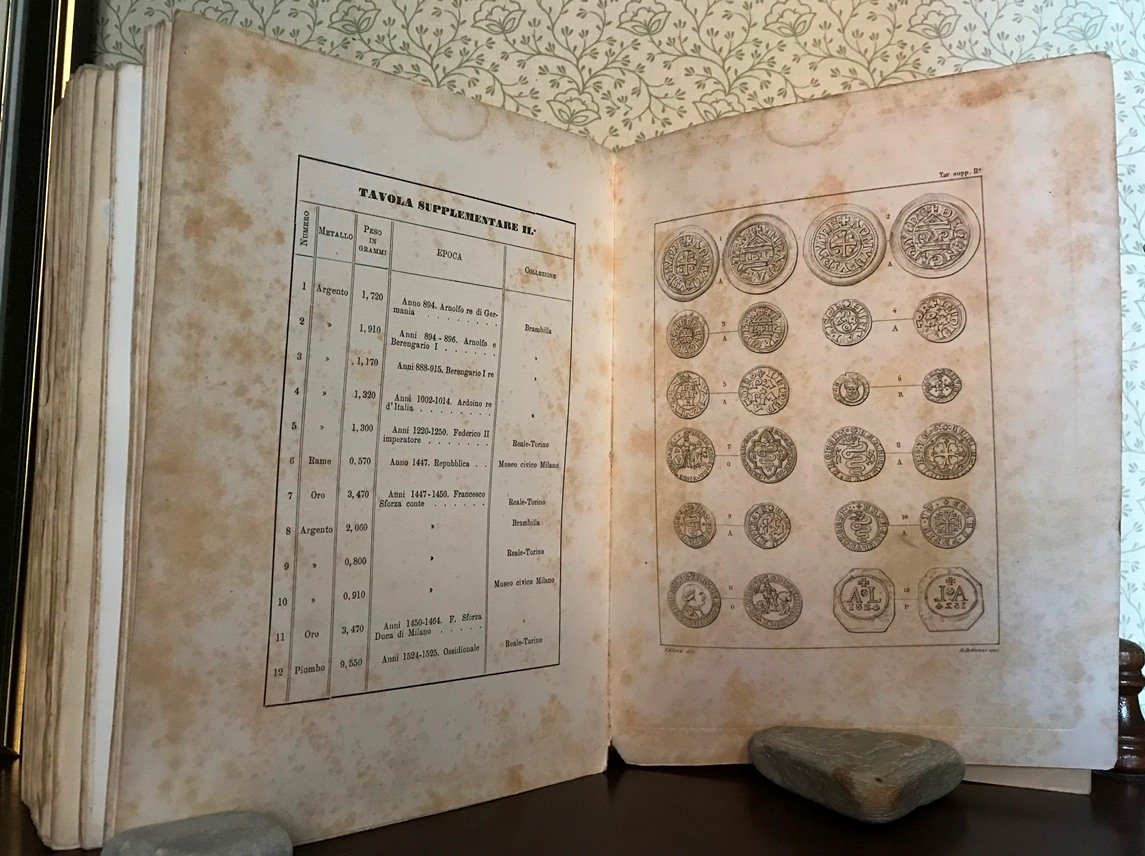 TAVOLA SUPPLEMENTARE II.ª
NUMERO METALLO PESO IN GRAMMI EPOCA COLLEZIONE
1 Argento 1,720 Anno 894. Arnolfo re di Ger-
mania . . . . . . . . Brambilla
2 » 1,910 Anni 894-896. Arnolfo e
Berengario I . . . . . . »
3 » 1,170 Anni 888-915. Berengario I re »
4 » 1,320 Anni 1002-1014. Ardoino re
d'Italia . . . . . . . . »
5 » 1,300 Anni 1220-1250. Federico II
imperatore . . . . . . . Reale-Torino
6 Rame 0,570 Anno 1447. Repubblica . . Museo civico Milano
7 Oro 3,470 Anni 1447-1450. Francesco
Sforza conte . . . . . . Reale-Torino
8 Argento 2,060 » Brambilla
9 » 0,800 » Reale-Torino
10 » 0,910 » Museo civico Milano
11 Oro 3,470 Anni 1450-1464. F. Sforza
Duca di Milano . . . . . »
12 Piombo 9,550 Anni 1524-1525. Ossidionale Reale-Torino
Tav. supp. IIª
1 2
A A
3 4
A A
5 6
A R
7 8
O A
9 10
A A
11 12
O P
A·L
1524